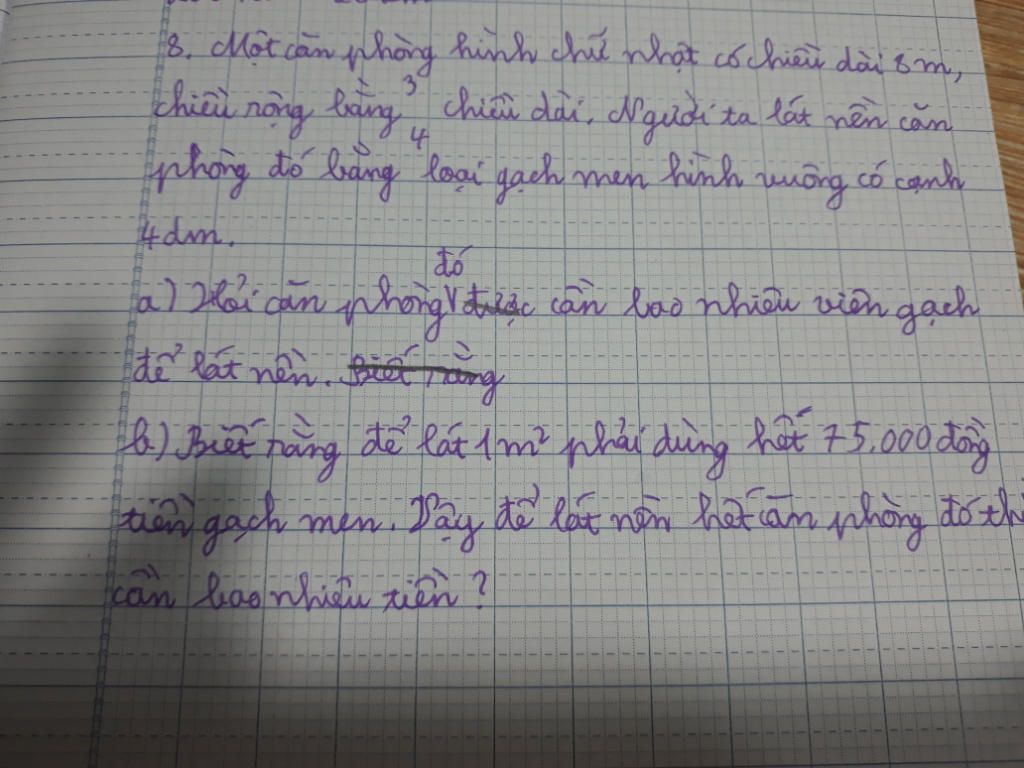 8. Một căn phòng hình chữ nhật có chiều dài 8m,
chiều rộng bằng 3/4 chiều dài. Người ta lát nền căn
phòng đó bằng loại gạch men hình vuông có cạnh
4dm.
a) Hỏi căn phòng đó được cần bao nhiêu viên gạch
để lát nền. Biết rằng
b) Biết rằng để lát 1m² phải dùng hết 75.000 đồng
tiền gạch men. Vậy để lát nền hết căn phòng đó thì
cần bao nhiêu tiền?